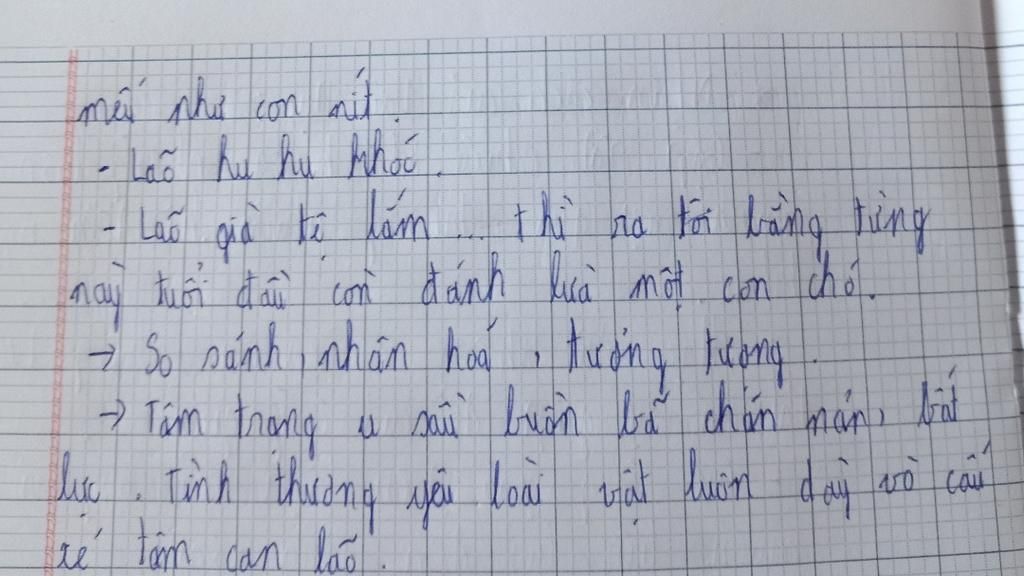 mếu như con nít.
- Lão hu hu khóc.
- Lão già tệ lắm... thì ra tôi bằng từng
này tuổi đầu còn đánh lừa một con chó.
→ So sánh, nhân hoá, tưởng tượng.
→ Tâm trạng u sầu buồn bã chán nản, bất
lực. Tình thương yêu loài vật luôn dày vò cấu
xé tâm can lão.